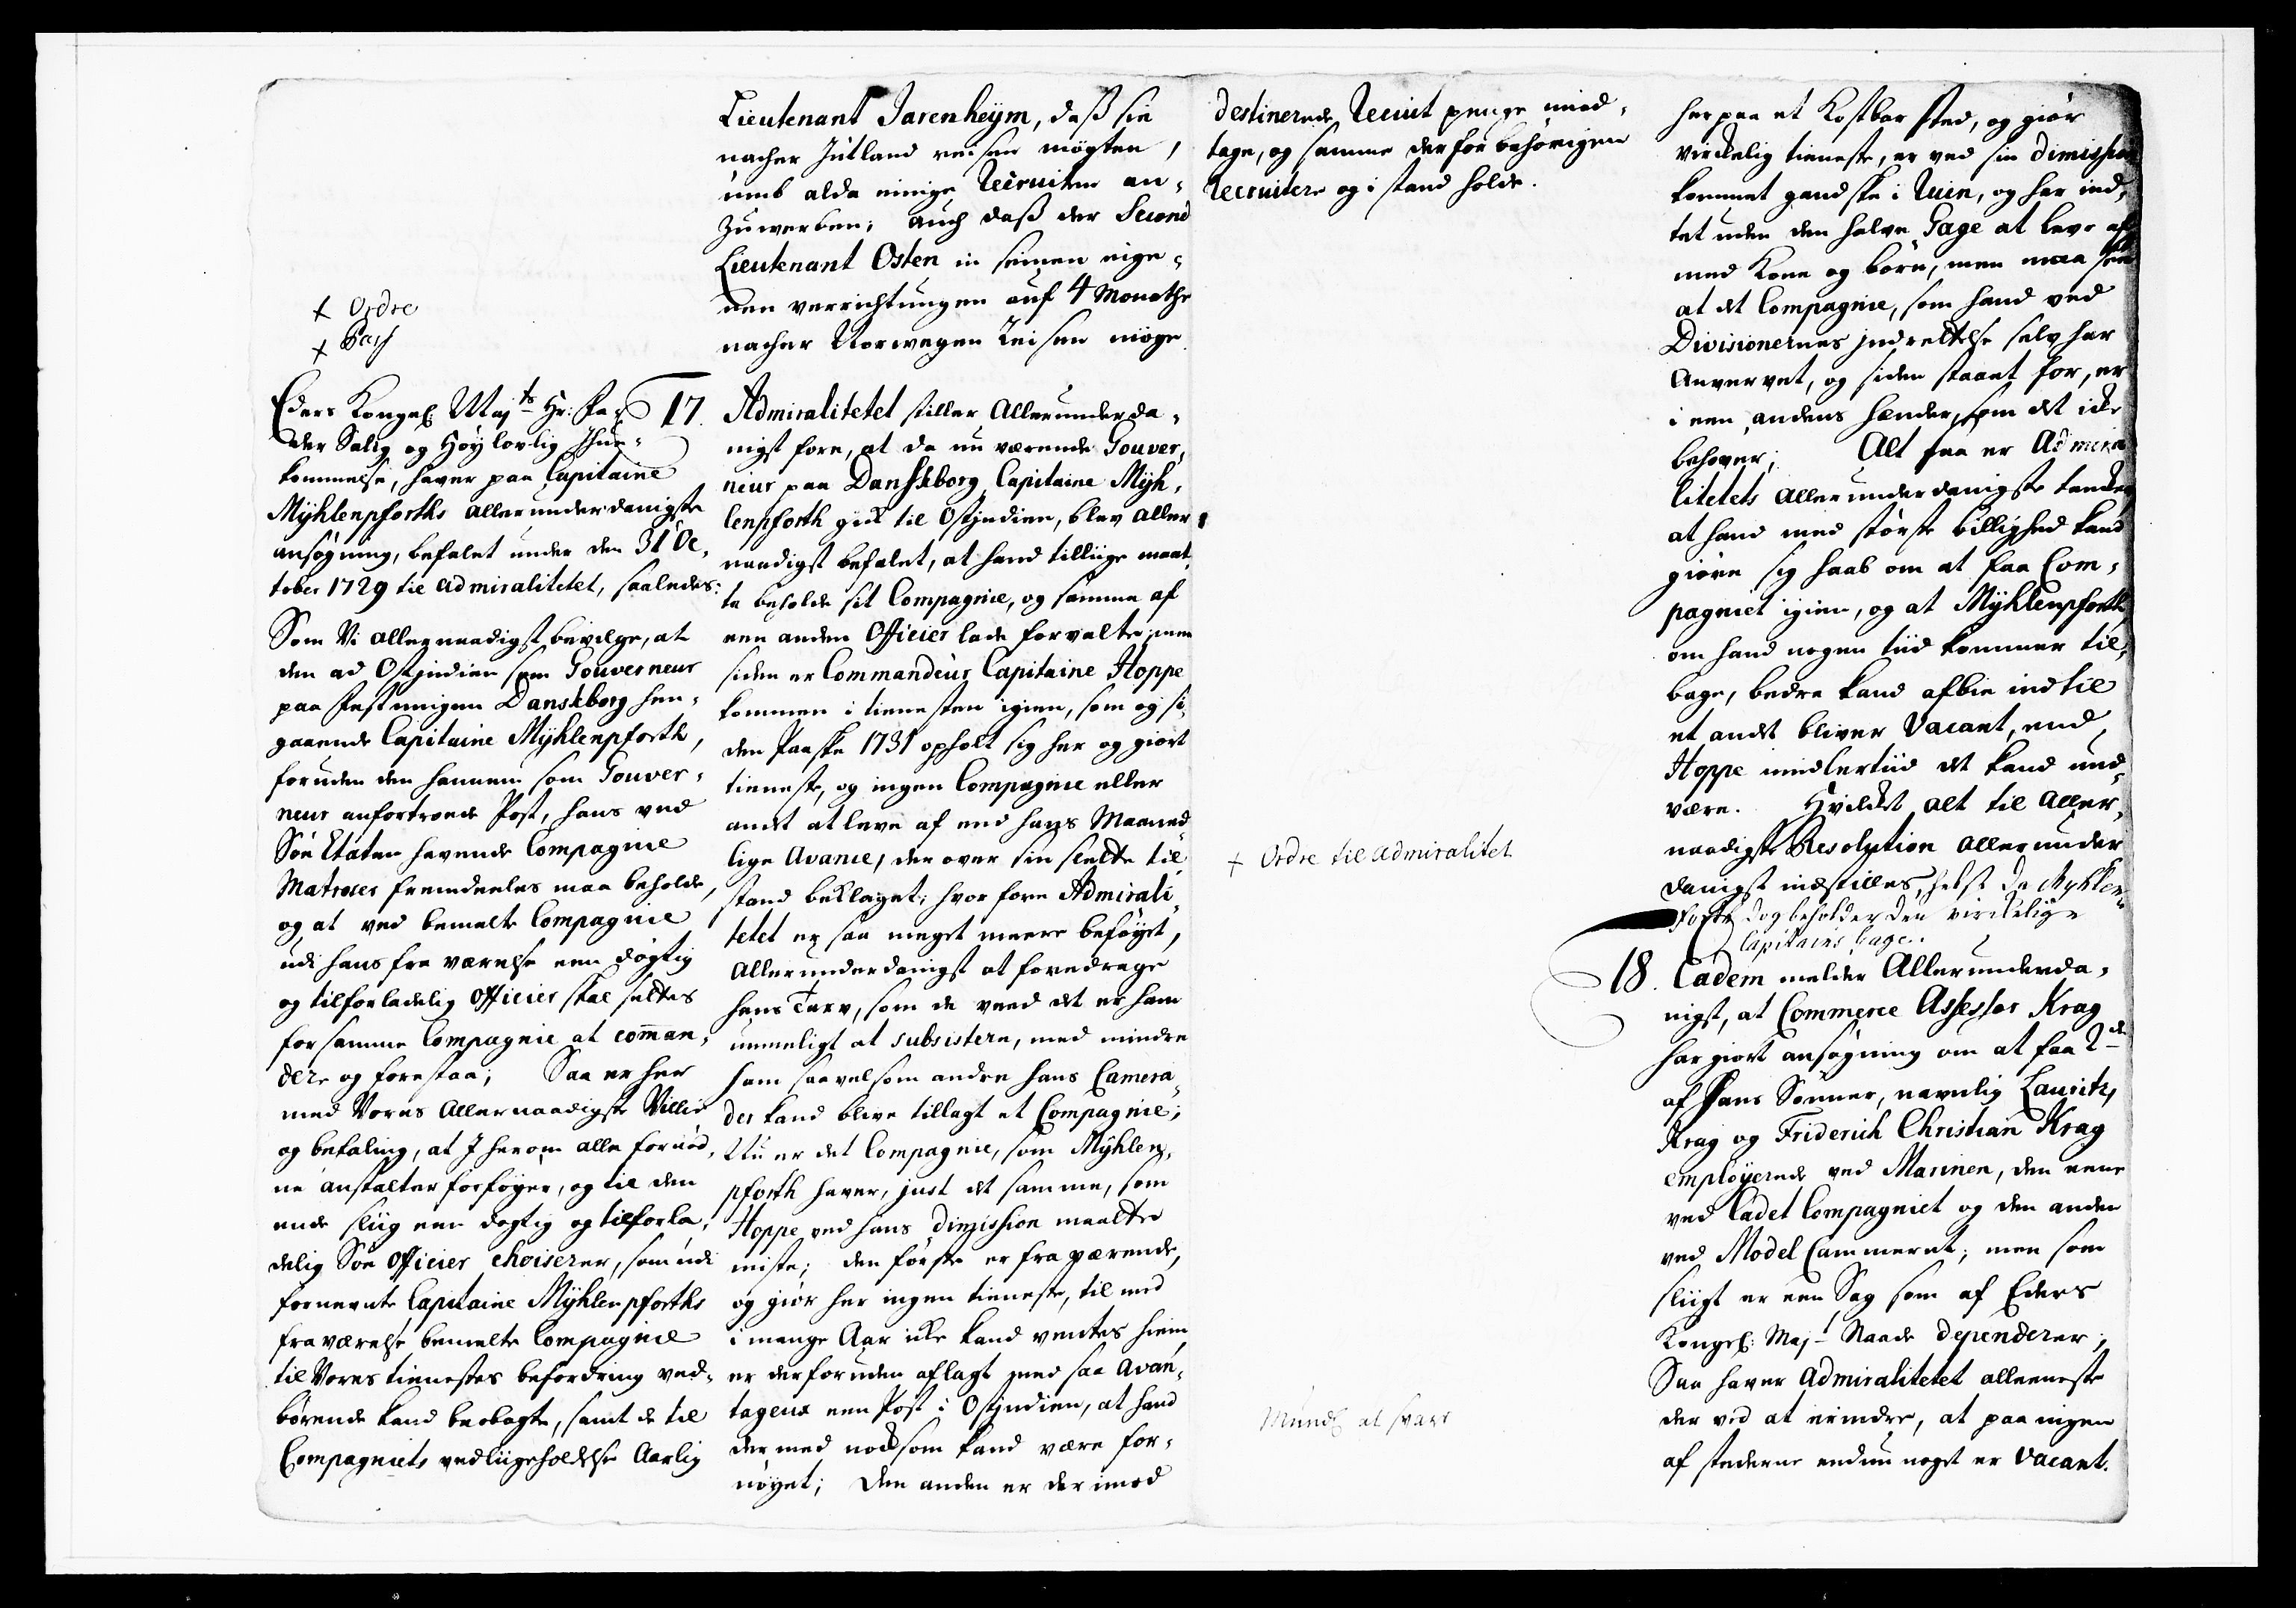 Lieutenant Jarenheÿm, daß sie
nacher Jutland reisen mögten,
umb alda einige Recruiten an-
zuwerben; auch daß der Second
Lieutenant Osten in seinen eige-
nen verrichtungen auf 4 Monathe
nacher Norwegen Reisen möge
+ Ordre
+ Pass
Eders Kongel: Maj:ts Hr: Fa-
der Salig og Höylovlig Ihu-
kommelse, haver paa Capitaine
Mÿhlenpforths allerunderdanigste
ansögning, befalet under den 31 Oc-
tober 1729 til Admiralitetet, saaledes:
Som Vi allernaadigst bevilge, at
den ad Ostjndien som Gouverneur
paa Festningen Dansborg hen-
gaaende Capitaine Mÿhlenpforth,
foruden den hannem som Gouver-
neur anfortroede Post, hans ved
Söe Etaten havende Compagnie
Matroser fremdeeles maa beholde,
og at ved bemelte Compagnie
udi hans fraværelse een dögtig
og tilforladelig Officier skal settes
for samme Compagnie at coman-
dere og forestaa; Saa er her
med Vores Allernaadigste Villie
og befaling, at I herom alle fornöd-
ne anstalter forföyer, og til den
ende sliig een dögtig og tilforla-
delig Söe Officier choiserer, som udi
fornevnte Capitaine Mÿhlenpforths
fraværelse bemelte Compagnie
til Vores tienestes befordring ved-
börende kand beobagte, samt de til
Compagniets vedliigeholdelse Aarlig
17. Admiralitetet stiller Allerunderda-
nigst fore, at da nu værende Gouver-
neur paa Danskborg Capitaine Mÿh-
lenpforth gik til Ostjndien, blev aller
naadigst befalet, at hand tilliige maat-
te beholde sit Compagnie, og samme af
een anden Officier lade forvalte; men
siden er Commandeur Capitaine Hoppe
kommen i tienesten igien, som og si-
den Paaske 1731 opholt sig her og giort
tieneste, og ingen Compagnie eller
andet at leve af end hans Maaned-
lige Avance, der over sin slette til-
stand beklaget; hvor fore Admirali-
tetet er saa meget meere beföyet,
Allerunderdanigst at foredrage
hans Tarv, som de veed det er ham
umueligt at subsistere, med mindre
ham saavelsom andre hans Camera-
der kand blive tillagt et Compagnie;
Nu er det Compagnie, som Mÿhlen-
pforth haver, just det samme, som
Hoppe ved hans Dimission maatte
miste; den förste er fraværende,
og giör her ingen tieneste, til med
i mange Aar ikke kand ventes hiem,
er derforuden aflagt med saa avan-
tageux een Post i Ostjndien, at hand
der med noksom kand være for-
nöyet; Den anden er der imod
destinerede Recruit penge imod-
tage, og samme derfor behörigen
recruitere og i stand holde.
+ Ordre til Admiralitet
Mundl: at svare
her paa et Kostbar sted, og giör
virkelig tieneste, er ved sin dimission
kommet gandske i Ruin, og har ind-
tet uden den halve Gage at leve af
med Kone og börn, men maa see
at det Compagnie, som hand ved
Divisionernes indrettelse selv har
Anvervet, og siden staaet for, er
i een andens hænder, som det icke
behöver; Alt saa er Admira-
litetets allerunderdanigste tanker
at hand med störste billighed kand
giöre sig haab om at faa Com-
pagniet igien, og at Mÿhlenpforth
om hand nogen tiid kommer til-
bage, bedre kand afbie indtil
et andet bliver vacant, end
Hoppe imidlertiid det kand und-
være. Hvilket alt til Aller-
naadigste Resolution allerunder
danigst indstilles, helst da Mÿhlen
pforth dog beholder den virckelige
Capitains Gage.
18. Eadem melder Allerunderda-
nigst, at Commerce Assessor Krag
har giort ansögning om at faa 2de
af hans Sönner, navnlig Lauritz
Krag og Friderich Christian Krag
employerede ved Marinen, den eene
ved Cadet Compagniet og den anden
ved Model Cammeret; men som
sliigt er een Sag som af Eders
Kongel: Maj:t Naade dependerer,
Saa haver Admiralitetet alleeneste
der ved at erindre, at paa ingen
af stederne endnu noget er vacant.